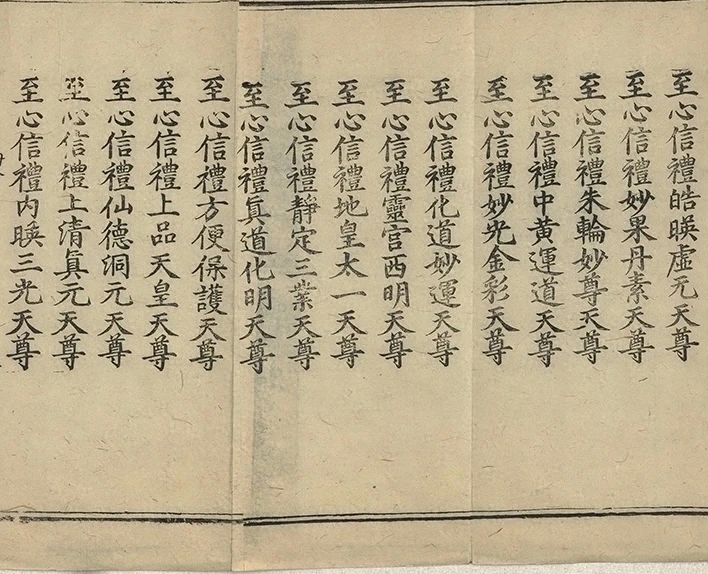 至心信禮皓暎虛无天尊
至心信禮妙果丹素天尊
至心信禮朱輪妙尊天尊
至心信禮中黃運道天尊
至心信禮妙光金彩天尊
至心信禮化道妙運天尊
至心信禮靈官西明天尊
至心信禮地皇太一天尊
至心信禮靜定三業天尊
至心信禮真道化明天尊
至心信禮方便保護天尊
至心信禮上品天皇天尊
至心信禮仙德洞元天尊
至心信禮上清真元天尊
至心信禮內暎三光天尊